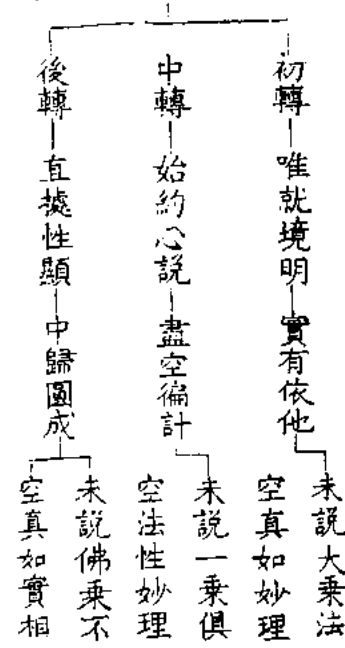 初轉
唯就境明
實有依他
未說大乘法
空真如妙理
中轉
始約心説
盡空徧計
未説一乘俱
空法性妙理
後轉
直據性顯
中歸圓成
未説佛乘不
空真如實相